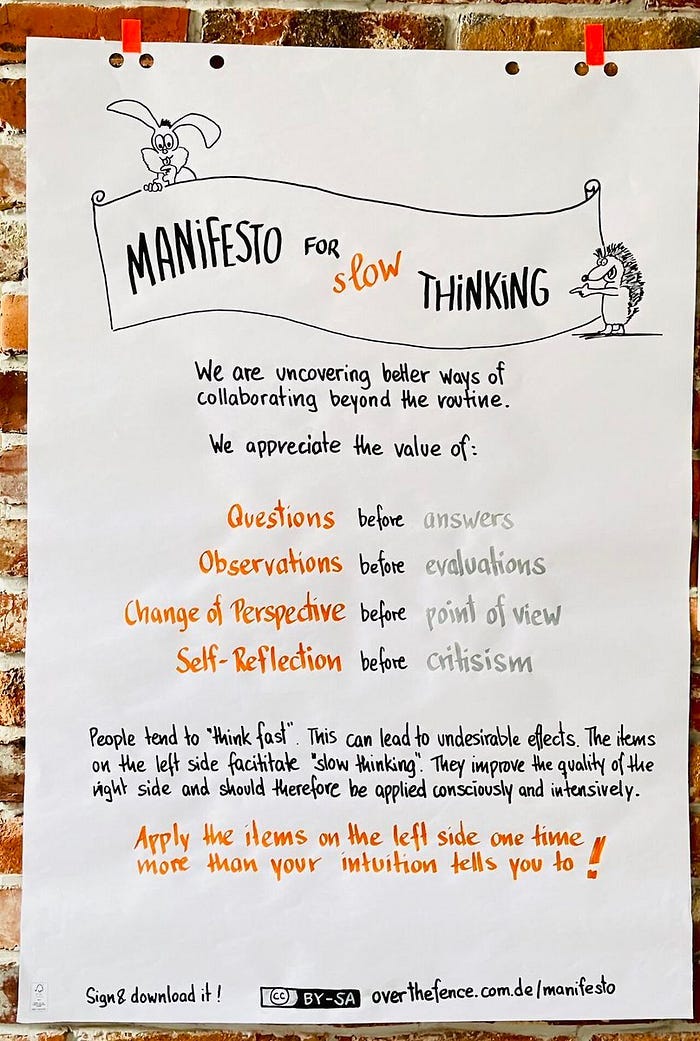 MANiFESTO FOR slow THiNKiNG
We are uncovering better ways of
collaborating beyond the routine.
We appreciate the value of:
Questions before answers
Observations before evaluations
Change of Perspective before point of view
Self-Reflection before critisism
People tend to "think fast". This can lead to undesirable effects. The items
on the left side facititate "slow thinking". They improve the quality of the
right side and should therefore be applied consciously and intensively.
Apply the items on the left side one time
more than your intuition tells you to!
Sign & download it! cc BY-SA overthefence.com.de/manifesto